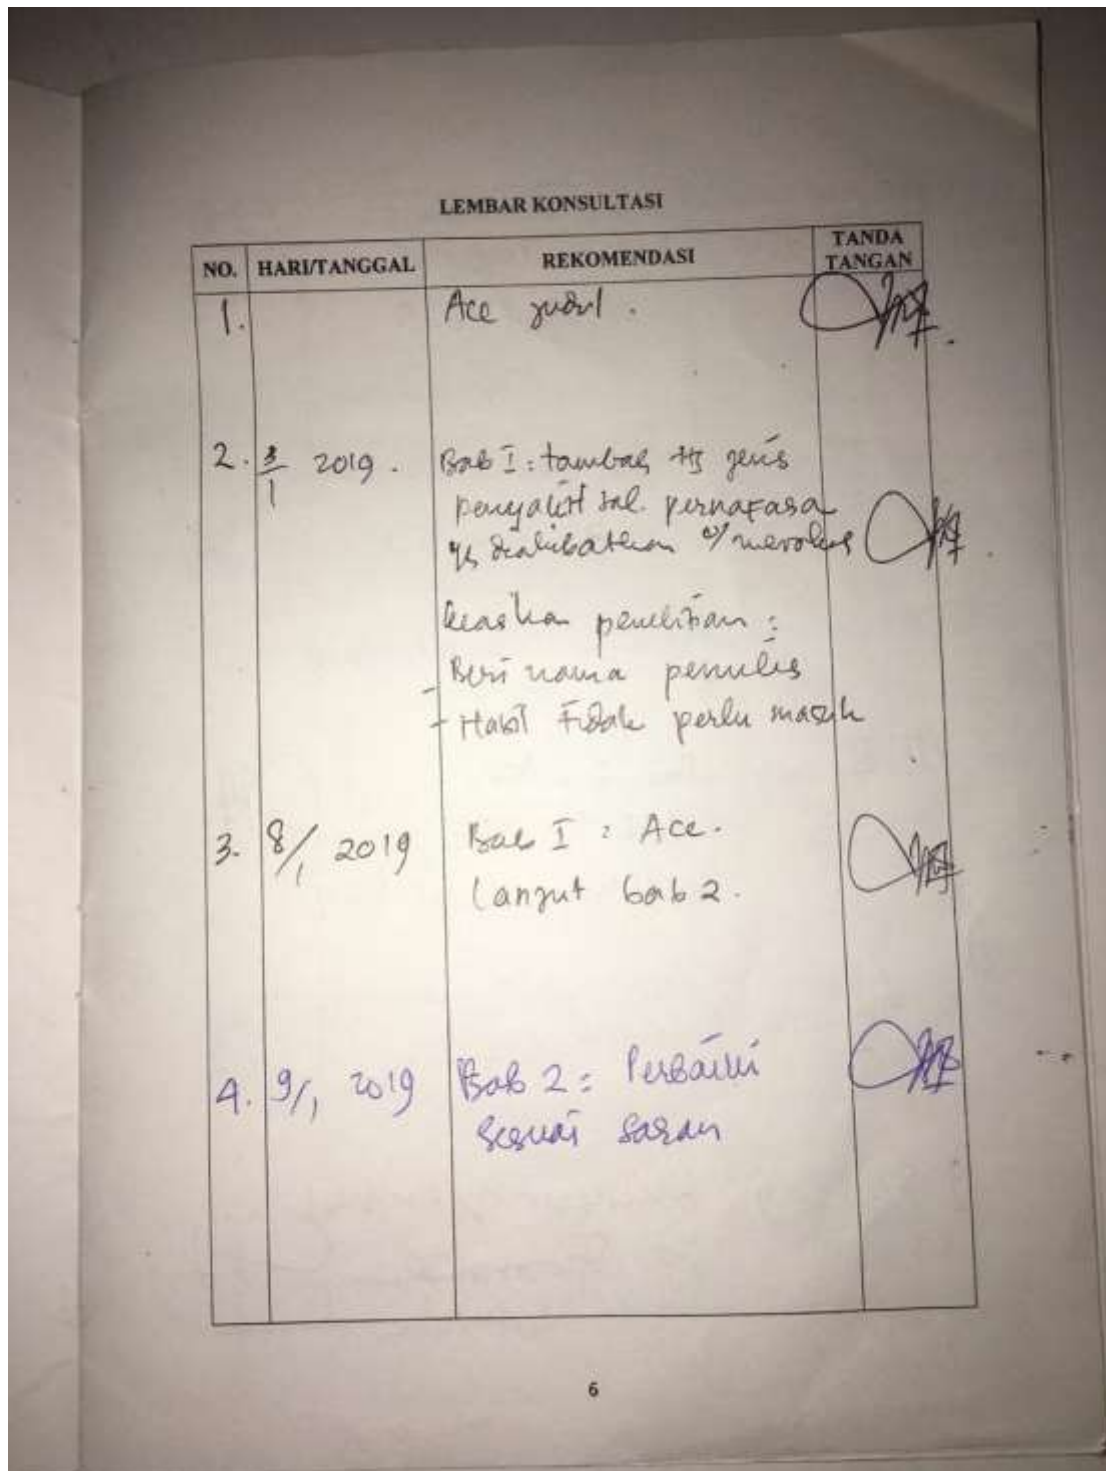 LEMBAR KONSULTASI
NO. HARI/TANGGAL REKOMENDASI TANDA TANGAN
1. Ace judul.
2. 3/1 2019. Bab I: tambah ttg jenis
penyakit sal. pernafasa
yg diakibatkan o/ merokok
keaslian penelitian:
- Beri nama penulis
- Hasil tidak perlu masuk
3. 8/1 2019 Bab I: Ace.
Lanjut bab 2.
4. 9/1 2019 Bab 2: Perbaiki
sesuai saran
6